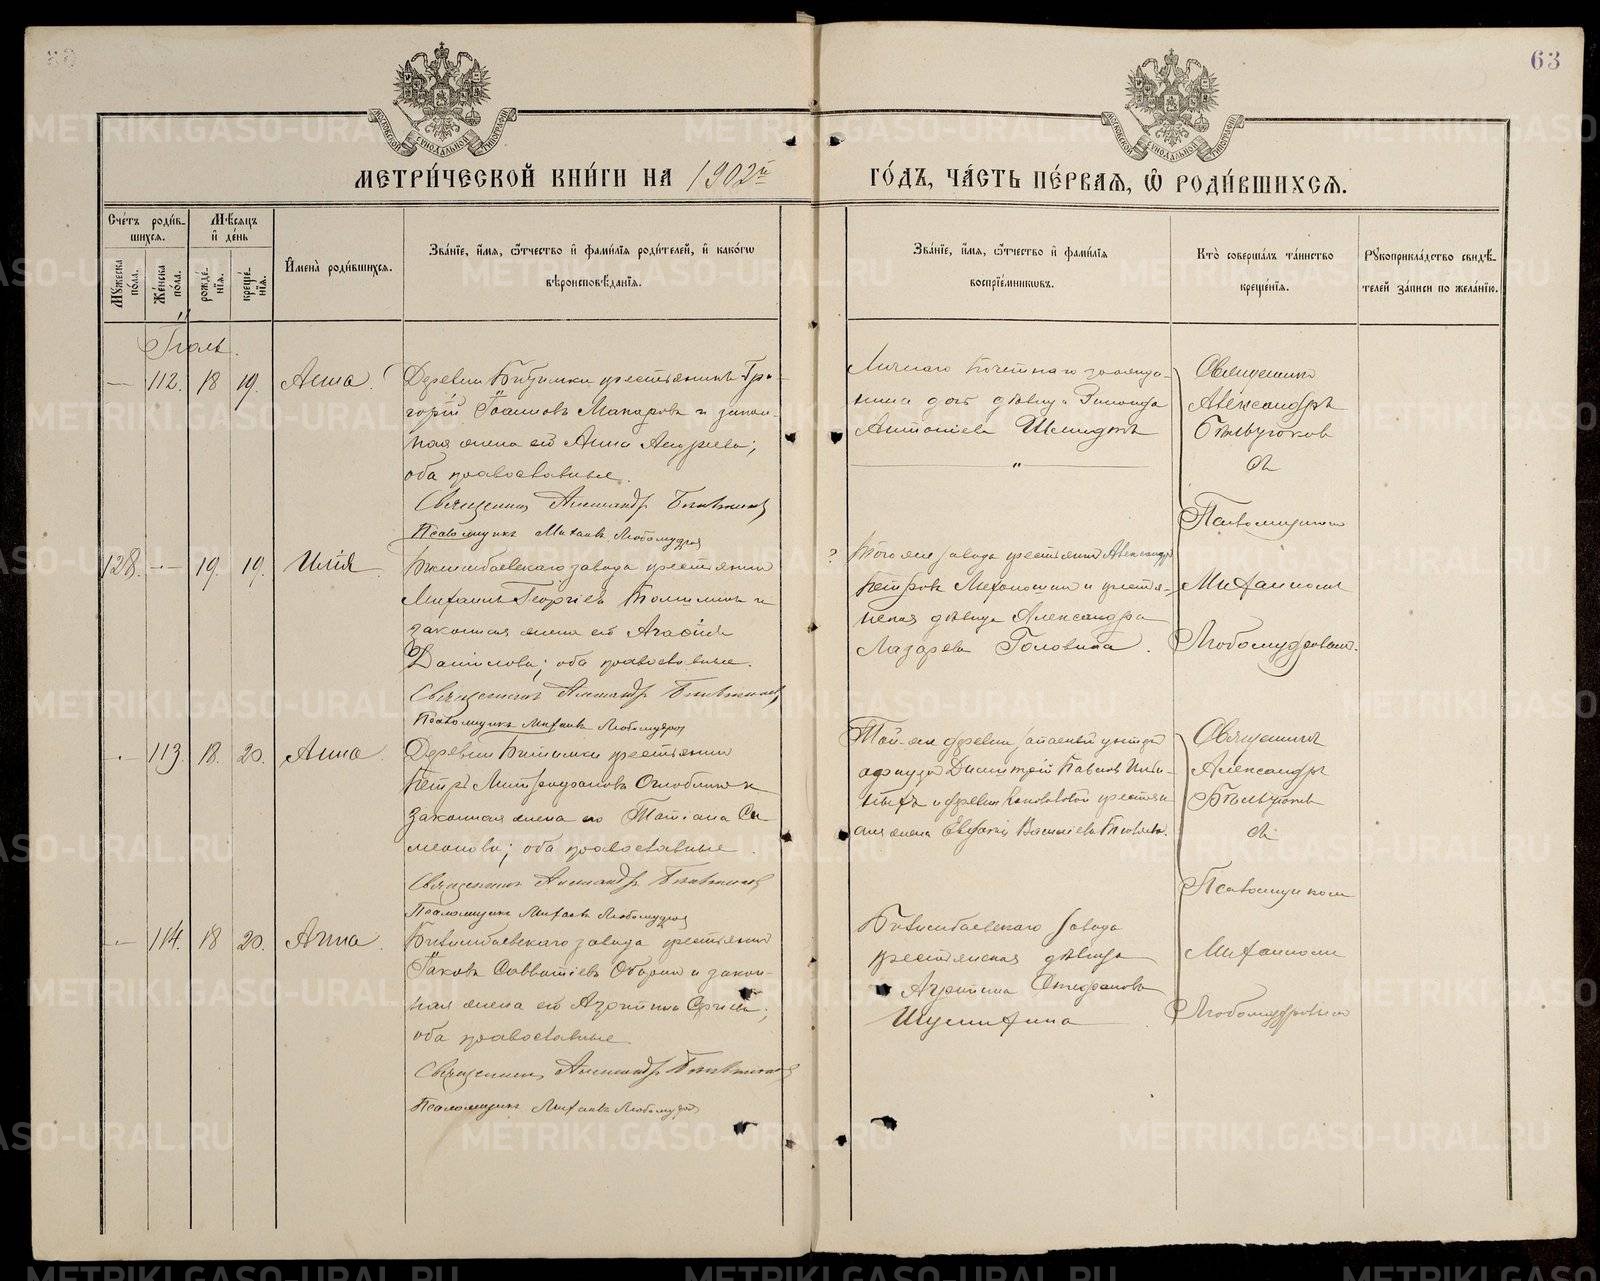 63
МОСКОВСКОЙ СѴНОДАЛЬНОЙ ТИПОГРАФІИ
МОСКОВСКОЙ СѴНОДАЛЬНОЙ ТИПОГРАФІИ
МЕТРИ́ЧЕСКОЙ КНИ́ГИ НА 1902й
ГО́ДЪ, ЧА́СТЬ ПЕ́РВАѦ, Ѡ РОДИ́ВШИХСѦ.
Сче́тъ роди́в-
шихсѧ.
Мꙋ́жеска по́ла.
Же́нска по́ла.
Мѣ́сѧцъ
и де́нь
рожде́-
нїѧ.
креще́-
нїѧ.
И҆мена̀ роди́вшихсѧ.
Зва́нїе, и҆́мѧ, ѻ҆́тчество и҆ фами́лїѧ роди́телей, и҆ како́гѡ
вѣроисповѣ́данїѧ.
Зва́нїе, и҆́мѧ, ѻ҆́тчество и҆ фами́лїѧ
воспрїе́мникѡвъ.
Кто̀ соверша́лъ та́инство
креще́нїѧ.
Рꙋкоприкла́дство свидѣ́-
телей за́писи по жела́нїю.
Іюль.
— 112. 18 19. Анна.
Деревни Битимки крестьянинъ Гри-
горій Іоанновъ Макаровъ и закон-
ная жена его Анна Андреева;
оба православные.
Священникъ Александръ
Псаломщикъ Михаилъ Любомудровъ
Личнаго Почетнаго гражда-
нина дочь дѣвица Зинаида
Антоніева Шмидтъ
"
Священникъ
Александръ
съ
Псаломщикомъ
Михаиломъ
Любомудровымъ.
128. — 19. 19. Илія
Билимбаевскаго завода крестьянинъ
Михаилъ Георгіевъ и
законная жена его Агафія
Даніилова; оба православные.
Священникъ Александръ
Псаломщикъ Михаилъ Любомудровъ
Того же завода крестьянинъ Александръ
Петровъ и крестьян-
ская дѣвица Александра
Лазарева Головина.
— 113. 18. 20. Анна.
Деревни Битимки крестьянинъ
Петръ Митрофановъ Оглоблинъ и
законная жена его Татіана Си-
меонова; оба православные.
Священникъ Александръ
Псаломщикъ Михаилъ Любомудровъ
Той-же деревни запасный унтеръ
офицеръ Димитрій Павловъ
и деревни Коноваловой крестьян-
ская жена Евгенія Васильева
Священникъ
Александръ
съ
Псаломщикомъ
Михаиломъ
Любомудровымъ
— 114. 18 20. Анна.
Билимбаевскаго завода крестьянинъ
Іаковъ Савватіевъ Оборинъ и закон-
ная жена его Агрипина Сергіева;
оба православные
Священникъ Александръ
Псаломщикъ Михаилъ Любомудровъ
Билимбаевскаго завода
крестьянская дѣвица
Агрипина Стефанова
Шумихина
METRIKI.GASO-URAL.RU